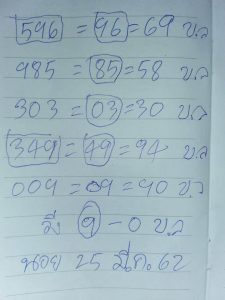 596 = 96 = 69 บ.ล
985 = 85 = 58 บ.ล
303 = 03 = 30 บ.ล
349 = 49 = 94 บ.ล
009 = 09 = 90 บ.ล
มี 9 - 0 บ.ล
นอย 25 มี.ค. 62